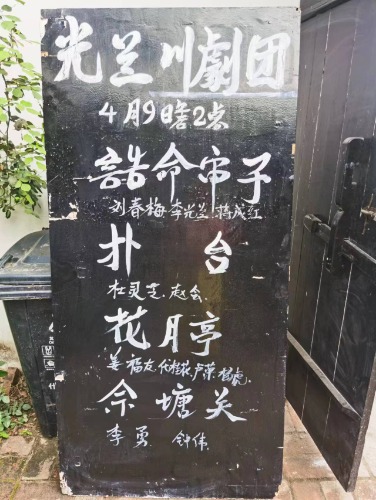 光兰川劇团
4月9日 2点
誥命帘子
刘春梅.李光兰.蒋成红
扑 台
杜灵芝.赵会
花月亭
姜福友.代桂花.卢荣.
佘塘关
李勇 钟伟